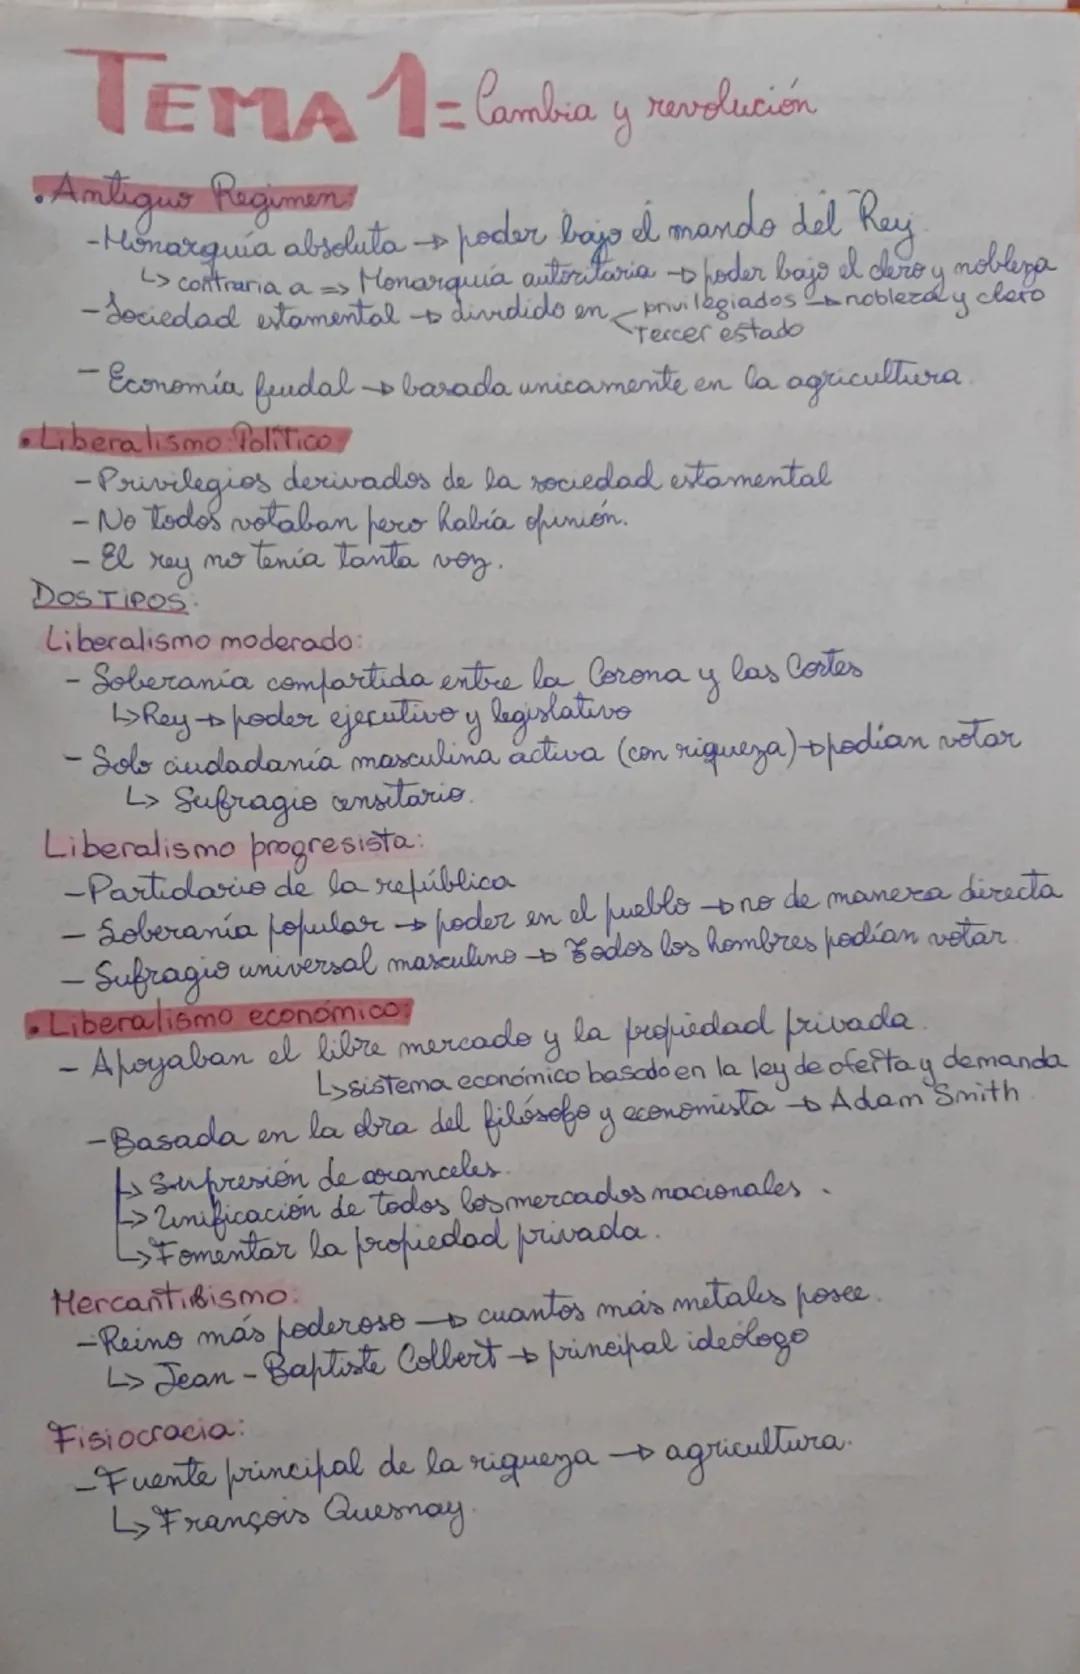 TEMA 1= Cambia y revolución
• Antiguo Regimen:
- Monarquía absoluta → poder bajo el mando del Rey.
↳ contraria a => Monarquía autoritaria → poder bajo el clero y nobleza
- Sociedad estamental → dividido en privilegiados → nobleza y clero
Tercer estado
- Economía feudal → basada unicamente en la agricultura.
• Liberalismo Político:
- Privilegios derivados de la sociedad estamental
- No todos votaban pero había opinión.
- El rey no tenía tanta voz.
DOS TIPOS:
Liberalismo moderado:
- Soberanía compartida entre la Corona y las Cortes
↳ Rey → poder ejecutivo y legislativo
- Solo ciudadanía masculina activa (con riqueza) → podían votar
↳ Sufragio censitario.
Liberalismo progresista:
- Partidario de la república
- Soberanía popular → poder en el pueblo → no de manera directa
- Sufragio universal masculino → Todos los hombres podían votar
• Liberalismo económico:
- Apoyaban el libre mercado y la propiedad privada.
↳ sistema económico basado en la ley de oferta y demanda
- Basada en la obra del filósofo y economista → Adam Smith
↳ Supresión de aranceles.
↳ Unificación de todos los mercados nacionales.
↳ Fomentar la propiedad privada.
Mercantilismo:
- Reino más poderoso → cuantos más metales posee.
↳ Jean - Baptiste Colbert → principal ideólogo
Fisiocracia:
- Fuente principal de la riqueza → agricultura.
↳ François Quesnay.